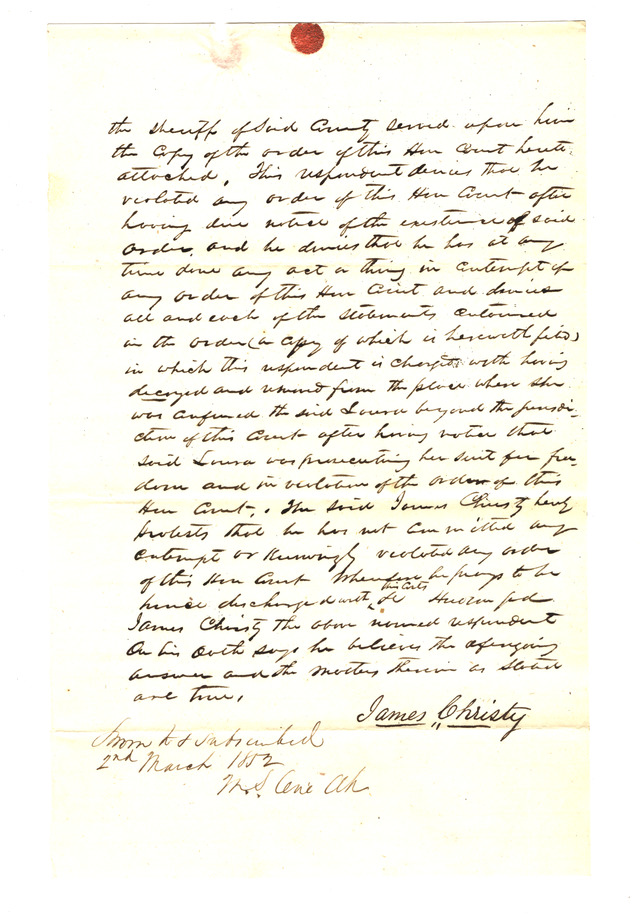 the Sheriff of Said County served upon him
the Copy of the order of this Hon Court hereto
attached. This respondent denies that he
violated any order of this Hon Court after
having due notice of the existence of said
order, and he denies that he has at any
time done any act or thing in Contempt of
any order of this Hon Court and denies
all and each of the statements contained
in the order (a copy of which is herewith filed)
in which this respondent is charged with having
decoyed and removed from the place where she
was confined the said Louisa beyond the jurisdi-
ction of this Court after having notice that
said Louisa was prosecuting her suit for free-
dom and in violation of the order of this
Hon Court. The said James Christy hereby
protests that he has not committed any
Contempt or Knowingly violated any order
of this Hon Court Wherefore he prays to be
hence discharged with his Costs &c
James Christy the above named respondent
On his Oath says he believes the foregoing
answer and the matters therein as stated
are true.
James Christy
Sworn to & subscribed
2nd March 1852
Clk